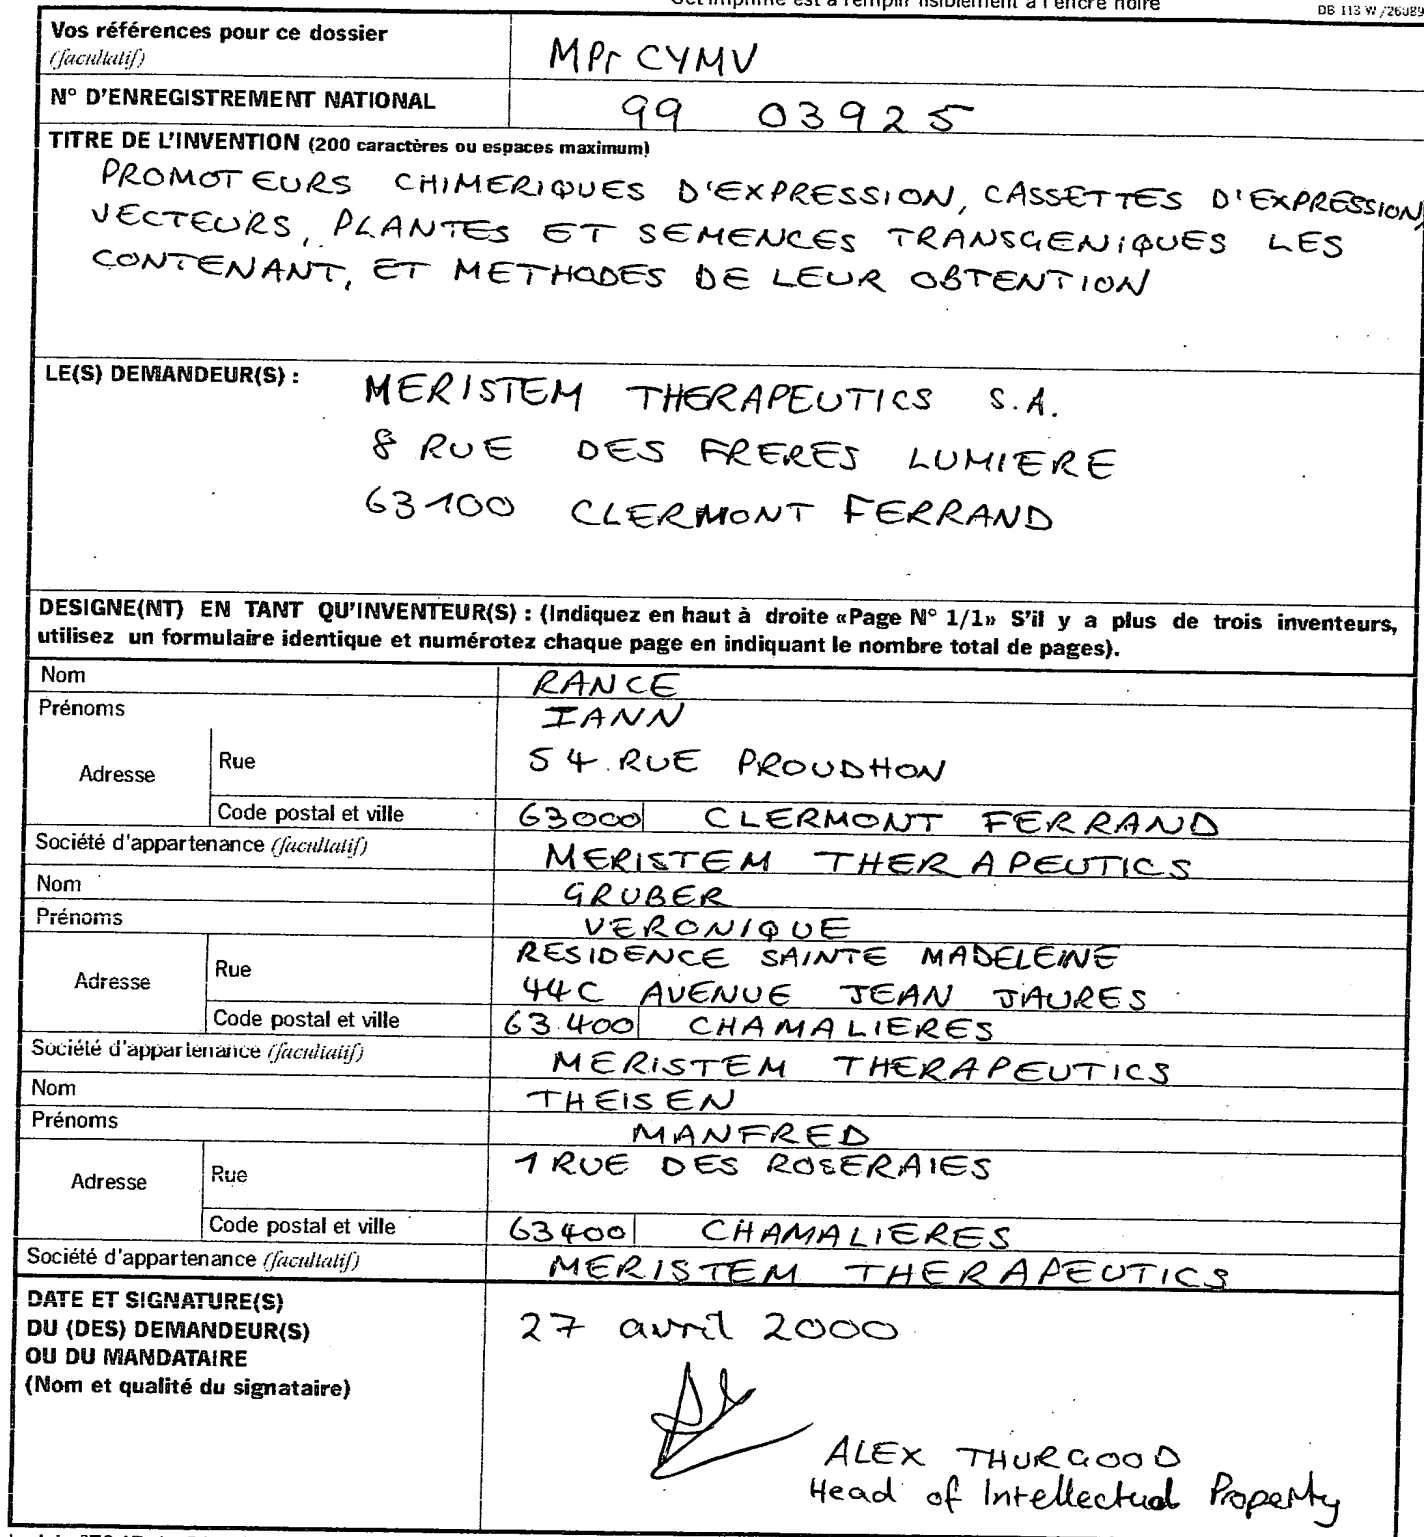 DB 113 W /26089
Vos références pour ce dossier
(facultatif)
MPr CYMV
N° D'ENREGISTREMENT NATIONAL
99 03925
TITRE DE L'INVENTION (200 caractères ou espaces maximum)
PROMOTEURS CHIMERIQUES D'EXPRESSION, CASSETTES D'EXPRESSION,
VECTEURS, PLANTES ET SEMENCES TRANSGENIQUES LES
CONTENANT, ET METHODES DE LEUR OBTENTION
LE(S) DEMANDEUR(S) :
MERISTEM THERAPEUTICS S.A.
8 RUE DES FRERES LUMIERE
63100 CLERMONT FERRAND
DESIGNE(NT) EN TANT QU'INVENTEUR(S) : (Indiquez en haut à droite «Page N° 1/1» S'il y a plus de trois inventeurs,
utilisez un formulaire identique et numérotez chaque page en indiquant le nombre total de pages).
Nom RANCE
Prénoms IANN
Adresse Rue 54 RUE PROUDHON
Code postal et ville 63000 CLERMONT FERRAND
Société d'appartenance (facultatif) MERISTEM THERAPEUTICS
Nom GRUBER
Prénoms VERONIQUE
RESIDENCE SAINTE MADELEINE
Adresse Rue 44C AVENUE JEAN JAURES
Code postal et ville 63.400 CHAMALIERES
Société d'appartenance (facultatif) MERISTEM THERAPEUTICS
Nom THEISEN
Prénoms MANFRED
Adresse Rue 1 RUE DES ROSERAIES
Code postal et ville 63400 CHAMALIERES
Société d'appartenance (facultatif) MERISTEM THERAPEUTICS
DATE ET SIGNATURE(S)
DU (DES) DEMANDEUR(S)
OU DU MANDATAIRE
(Nom et qualité du signataire)
27 avril 2000
ALEX THURGOOD
Head of Intellectual Property